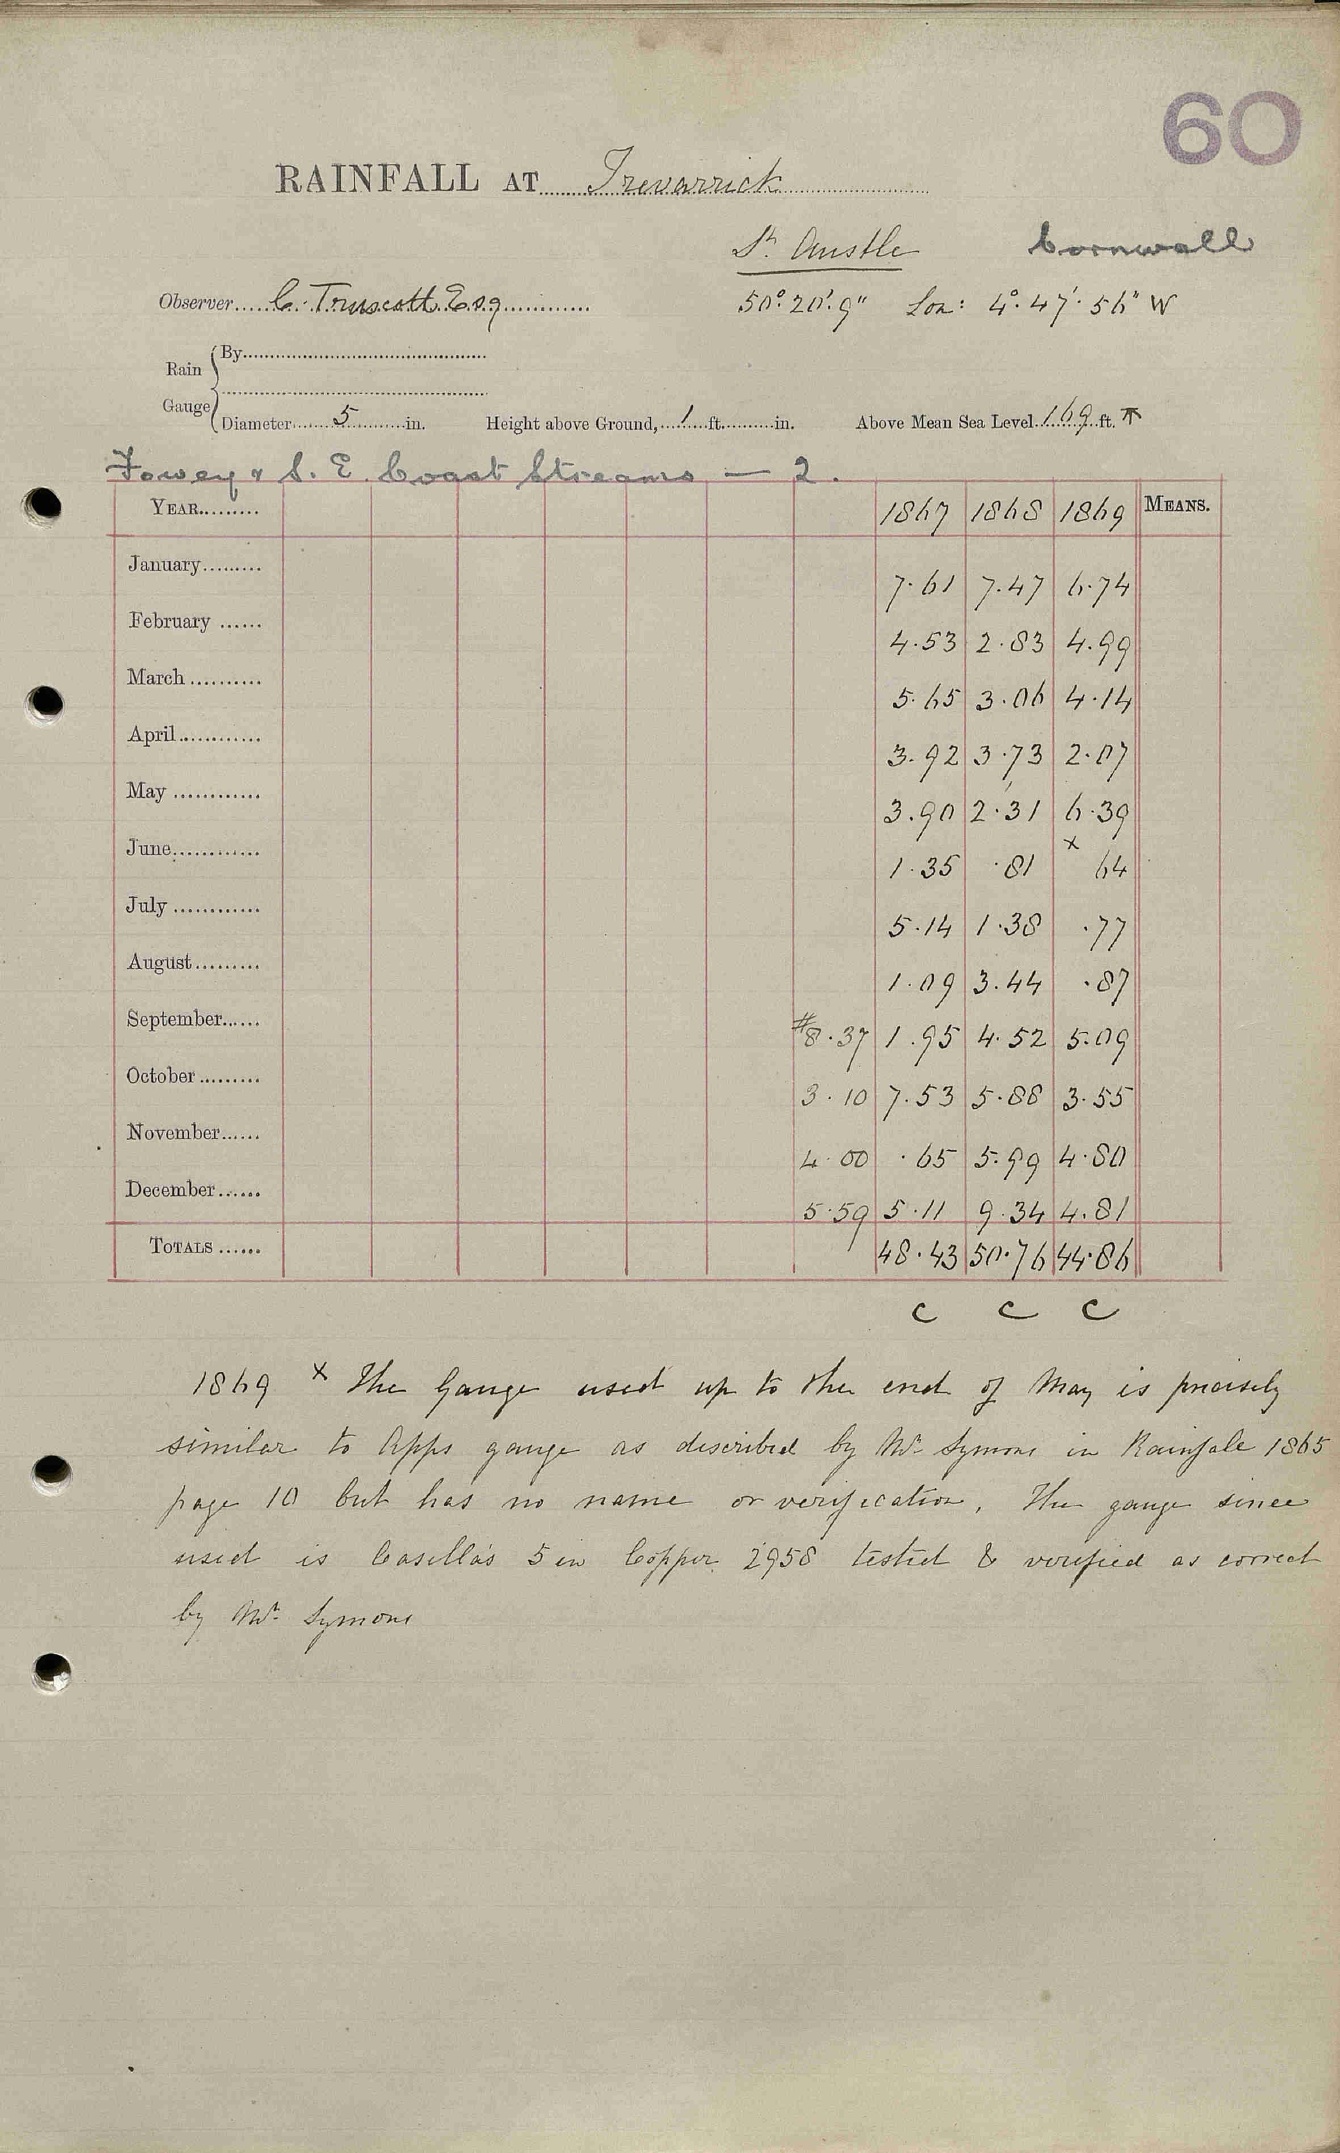 60
RAINFALL AT Trevarrick
St. Austle Cornwall
Observer C. Truscott Esq 50°.20'.9" Lon: 4°.47'.56" W
Rain Gauge { By
Diameter 5 in. Height above Ground, 1 ft. in. Above Mean Sea Level 169 ft. T
Fowey & S. E. Coast Streams — 2.
YEAR 1867 1868 1869 MEANS.
January 7.61 7.47 6.74
February 4.53 2.83 4.99
March 5.65 3.06 4.14
April 3.92 3.73 2.07
May 3.90 2.31 6.39
June 1.35 .81 x 64
July 5.14 1.38 .77
August 1.09 3.44 .87
September #8.37 1.95 4.52 5.09
October 3.10 7.53 5.88 3.55
November 4.00 .65 5.99 4.80
December 5.59 5.11 9.34 4.81
TOTALS 48.43 50.76 44.86
C C C
1869 x The Gauge used up to the end of May is precisely
similar to Apps gauge as described by Mr. Symons in Rainfale 1865
page 10 but has no name or verification. The gauge since
used is Casella's 5 in Copper 2958 tested & verified as correct
by Mr. Symons